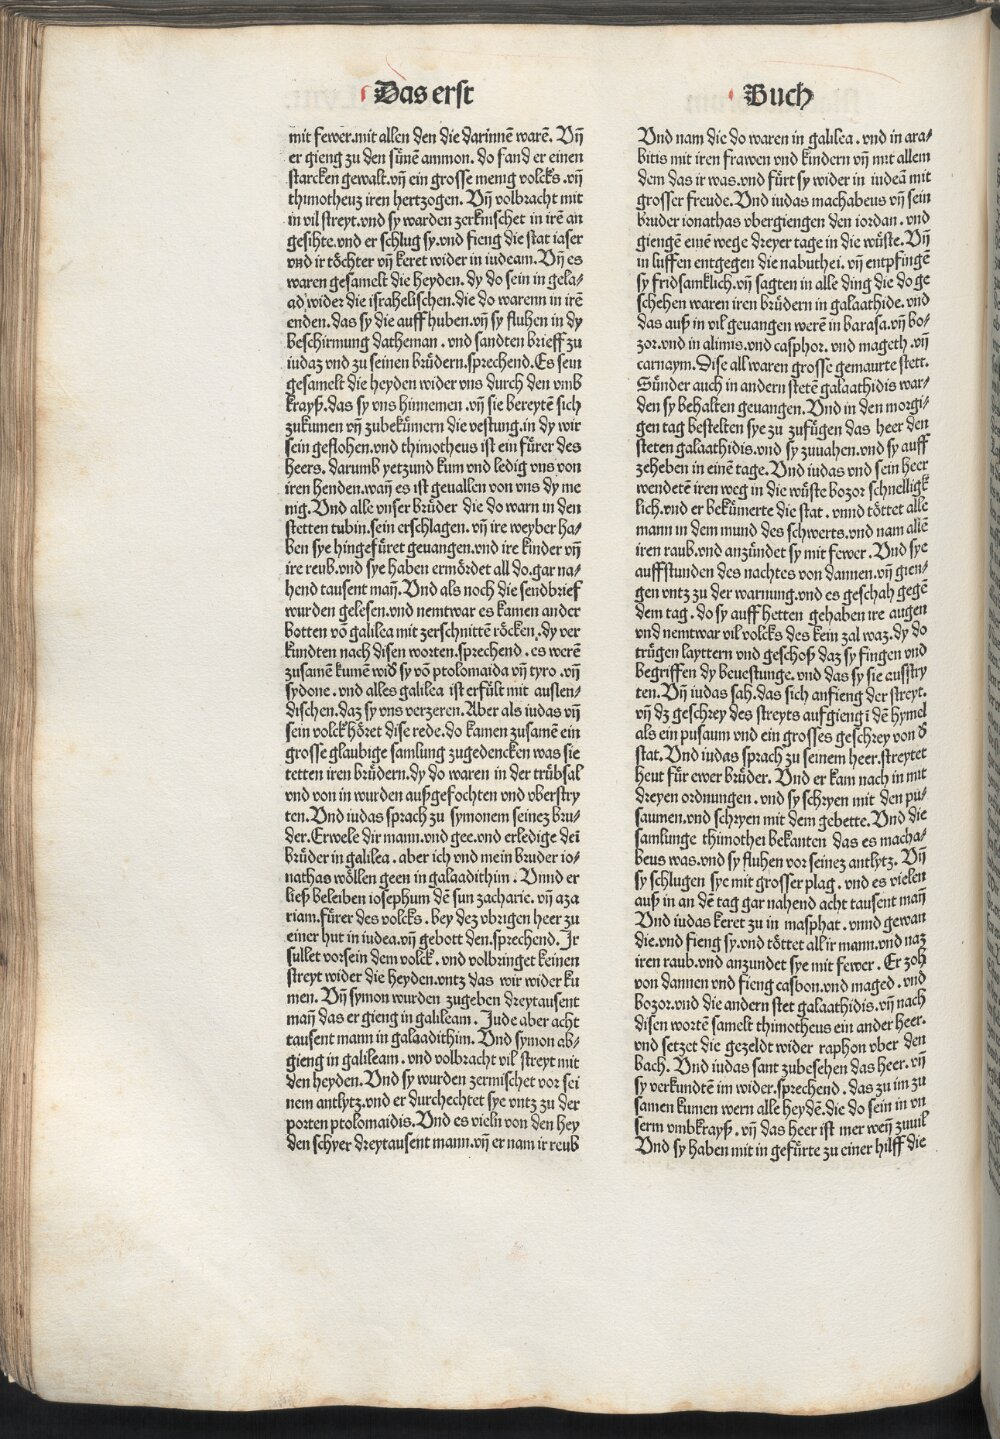 Das erst
Buch
mit fewer.mit allen den die darinnē warē. Vñ
er gieng zu den sünē ammon. do fand er einen
starcken gewalt.vñ ein grosse menig volcks .vñ
thimotheuz iren hertzogen. Vñ volbracht mit
in vil streyt.vnd sy warden zerknischet in irē an
gesihte.vnd er schlug sy.vnd fieng die stat iaser
vnd ir töchter vñ keret wider in iudeam. Vñ es
waren gesamelt die heyden. dy do sein in gela⸗
ad wider die israhelischen.die do warenn in irē
enden.das sy die auff huben.vñ sy fluhen in dy
beschirmung datheman . vnd sandten brieff zu
iudaz vnd zu seinen brüdern.sprechend.Es sein
gesamelt die heyden wider vns durch den vmb
krayß.das sy vns hinnemen .vñ sie bereytē sich
zukumen vñ zubekümern die vestung.in dy wir
sein geflohen.vnd thimotheus ist ein fürer des
heers. darumb yetzund kum vnd ledig vns von
iren henden.wañ es ist geuallen von vns dy me
nig.Vnd alle vnser brüder die do warn in den
stetten tubin.sein erschlagen. vñ ire weyber ha⸗
ben sye hingefüret geuangen.vnd ire kinder vñ
ire reub.vnd sye haben ermördet all do.gar na⸗
hend tausent mañ.Vnd als noch die sendbrief
wurden gelesen.vnd nemtwar es kamen ander
botten vō galilea mit zerschnittē röcken.dy ver
kundten nach disen worten.sprechend . es werē
zusamē kumē wid sy vō ptolomaida vñ tyro .vñ
sydone . vnd alles galilea ist erfült mit auslen⸗
dischen.daz sy vns verzeren.Aber als iudas vñ
sein volck höret dise rede.do kamen zusamē ein
grosse glaubige samlung zugedencken was sie
tetten iren brüdern.dy do waren in der trübsal
vnd von in wurden außgefochten vnd vberstry
ten. Vnd iudas sprach zu symonem seinez bru⸗
der.Erwele dir mann.vnd gee.vnd erledige dei
brüder in galilea . aber ich vnd mein bruder io⸗
nathas wöllen geen in galaadithim . Vnnd er
ließ beleiben iosephum dē sun zacharie. vñ aza
riam.fürer des volcks . bey dez vbrigen heer zu
einer hut in iudea.vñ gebott den.sprechend. Ir
sullet vorsein dem volck . vnd volbringet keinen
streyt wider die heyden.vntz das wir wider ku
men. Vñ symon wurden zugeben dreytausent
mañ das er gieng in galileam . Jude aber acht
tausent mann in galaadithim. Vnd symon ab⸗
gieng in galileam . vnd volbracht vil streyt mit
den heyden.Vnd sy wurden zermischet vor sei
nem antlytz.vnd er durchechtet sye vntz zu der
porten ptolomaidis.Vnd es vieln von den hey
den schyer dreytausent mann.vñ er nam ir reub
Vnd nam die do waren in galilea . vnd in ara⸗
bitis mit iren frawen vnd kindern vñ mit allem
dem das ir was.vnd fürt sy wider in iudeā mit
grosser freude.Vnd iudas machabeus vñ sein
bruder ionathas vbergiengen den iordan . vnd
giengē einē wege dreyer tage in die wüste. Vñ
in luffen entgegen die nabuthei. vñ entpfingē
sy fridsamklich.vñ sagten in alle ding die do ge
schehen waren iren brüdern in galaathide. vnd
das auß in vil geuangen werē in barasa.vñ bo⸗
zor.vnd in alimis.vnd casphor. vnd mageth .vñ
carnaym.Dise all waren grosse gemaurte stett.
Sünder auch in andern stetē galaathidis war⸗
den sy behalten geuangen.Vnd in den morgi⸗
gen tag bestelten sye zu zufügen das heer den
steten galaathidis.vnd sy zuuahen.vnd sy auff
zeheben in einē tage.Vnd iudas vnd sein heer
wendetē iren weg in die wüste bozor schnelligk
lich.vnd er bekümerte die stat . vnnd töttet alle
mann in dem mund des schwerts.vnd nam allē
iren raub.vnd anzündet sy mit fewer . Vnd sye
auffstunden des nachtes von dannen.vñ gien⸗
gen vntz zu der warnung.vnd es geschah gegē
dem tag . do sy auff hetten gehaben ire augen
vnd nemtwar vil volcks des kein zal waz.dy do
trügen layttern vnd geschoß daz sy fingen vnd
begriffen dy beuestunge. vnd das sy sie ausstry
ten. Vñ iudas sah.das sich anfieng der streyt.
vñ dz geschrey des streyts aufgieng ī dē hymel
als ein pusaum vnd ein grosses geschrey von d̄
stat. Vnd iudas sprach zu seinem heer.streytet
heut für ewer brüder. Vnd er kam nach in mit
dreyen ordnungen . vnd sy schryen mit den pu⸗
saumen.vnd schryen mit dem gebette. Vnd die
samlunge thimothei bekanten das es macha⸗
beus was.vnd sy fluhen vor seinez antlytz. Vñ
sy schlugen sye mit grosser plag . vnd es vielen
auß in an dē tag gar nahend acht tausent mañ
Vnd iudas keret zu in masphat . vnnd gewan
die.vnd fieng sy.vnd töttet all ir mann.vnd naz
iren raub.vnd anzundet sye mit fewer . Er zoh
von dannen vnd fieng casbon.vnd maged . vnd
bozor.vnd die andern stet galaathidis.vñ nach
disen wortē samelt thimotheus ein ander heer.
vnd setzet die gezeldt wider raphon vber den
bach. Vnd iudas sant zubesehen das heer. vñ
sy verkundtē im wider.sprechend . das zu im zu
samen kumen wern alle heydē.die do sein in vn
serm vmbkrayß . vñ das heer ist mer weñ zuuil
Vnd sy haben mit in gefürte zu einer hilff die